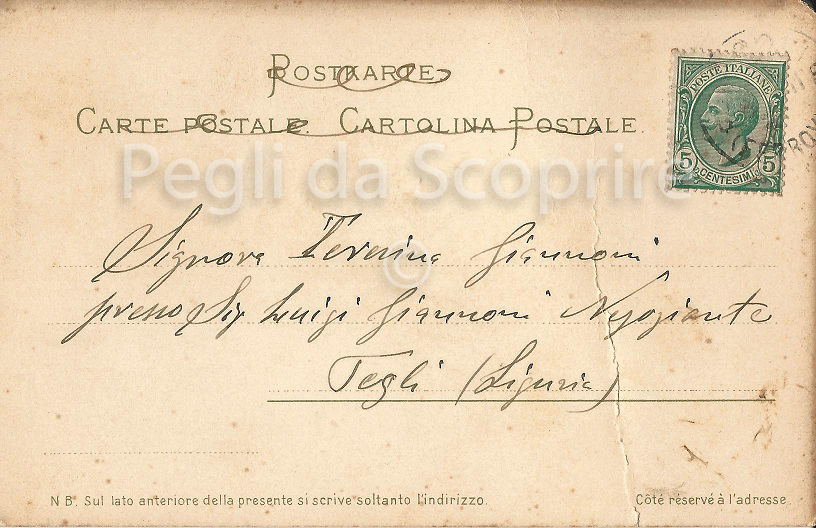 POSTKARTE.
CARTE POSTALE. CARTOLINA POSTALE.
POSTE ITALIANE
5 CENTESIMI 5
Pegli da Scoprire
©
Signora Teresina Giannoni
presso Sig Luigi Giannoni Negoziante
Pegli (Liguria)
N B. Sul lato anteriore della presente si scrive soltanto l'indirizzo.
Côté réservé à l'adresse